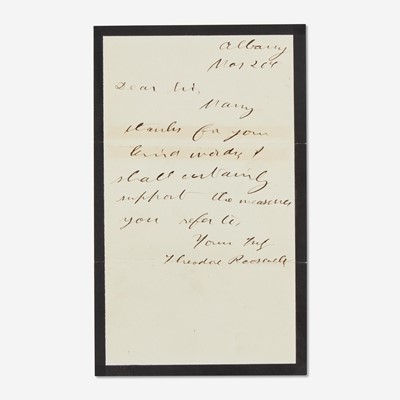 Albany
Mar 26th
Dear Sir,
Many
thanks for your
kind words; I
shall certainly
support the measures
you refer to,
Yours Truly
Theodore Roosevelt